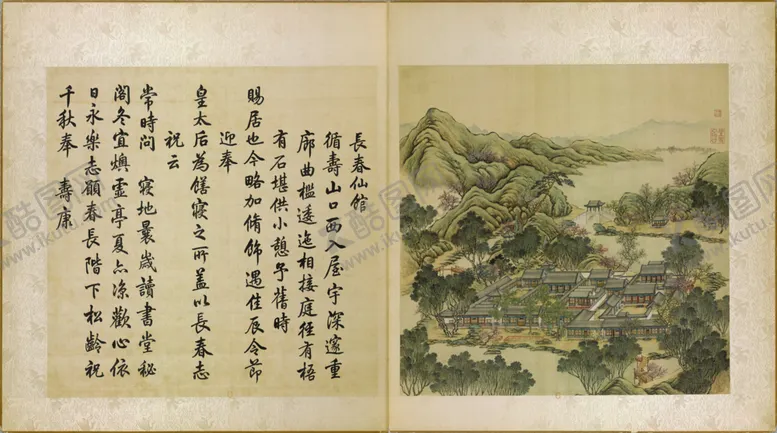 長春仙館
循壽山口西入屋宇深邃重
廊曲檻逶迤相接庭徑有梧
有石堪供小憩予舊時
賜居也今略加脩飾遇佳辰令節
迎奉
皇太后為膳寢之所蓋以長春志
祝云
常時問 寢地曩歲讀書堂秘
閣冬宜燠虛亭夏亦涼歡心依
日永樂志願春長階下松齡祝
千秋奉 壽康
www.ikutu.com